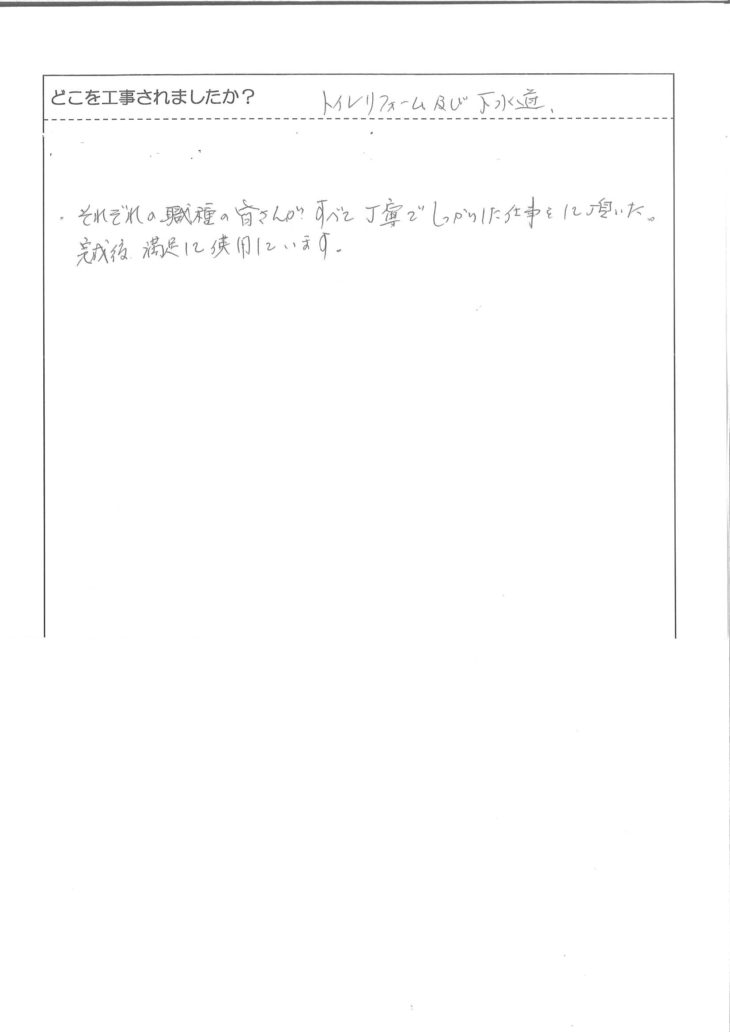 どこを工事されましたか？ トイレリフォーム及び下水道、
・それぞれの職種の皆さんがすべて丁寧でしっかりした仕事をして頂いた。
完成後満足して使用しています。